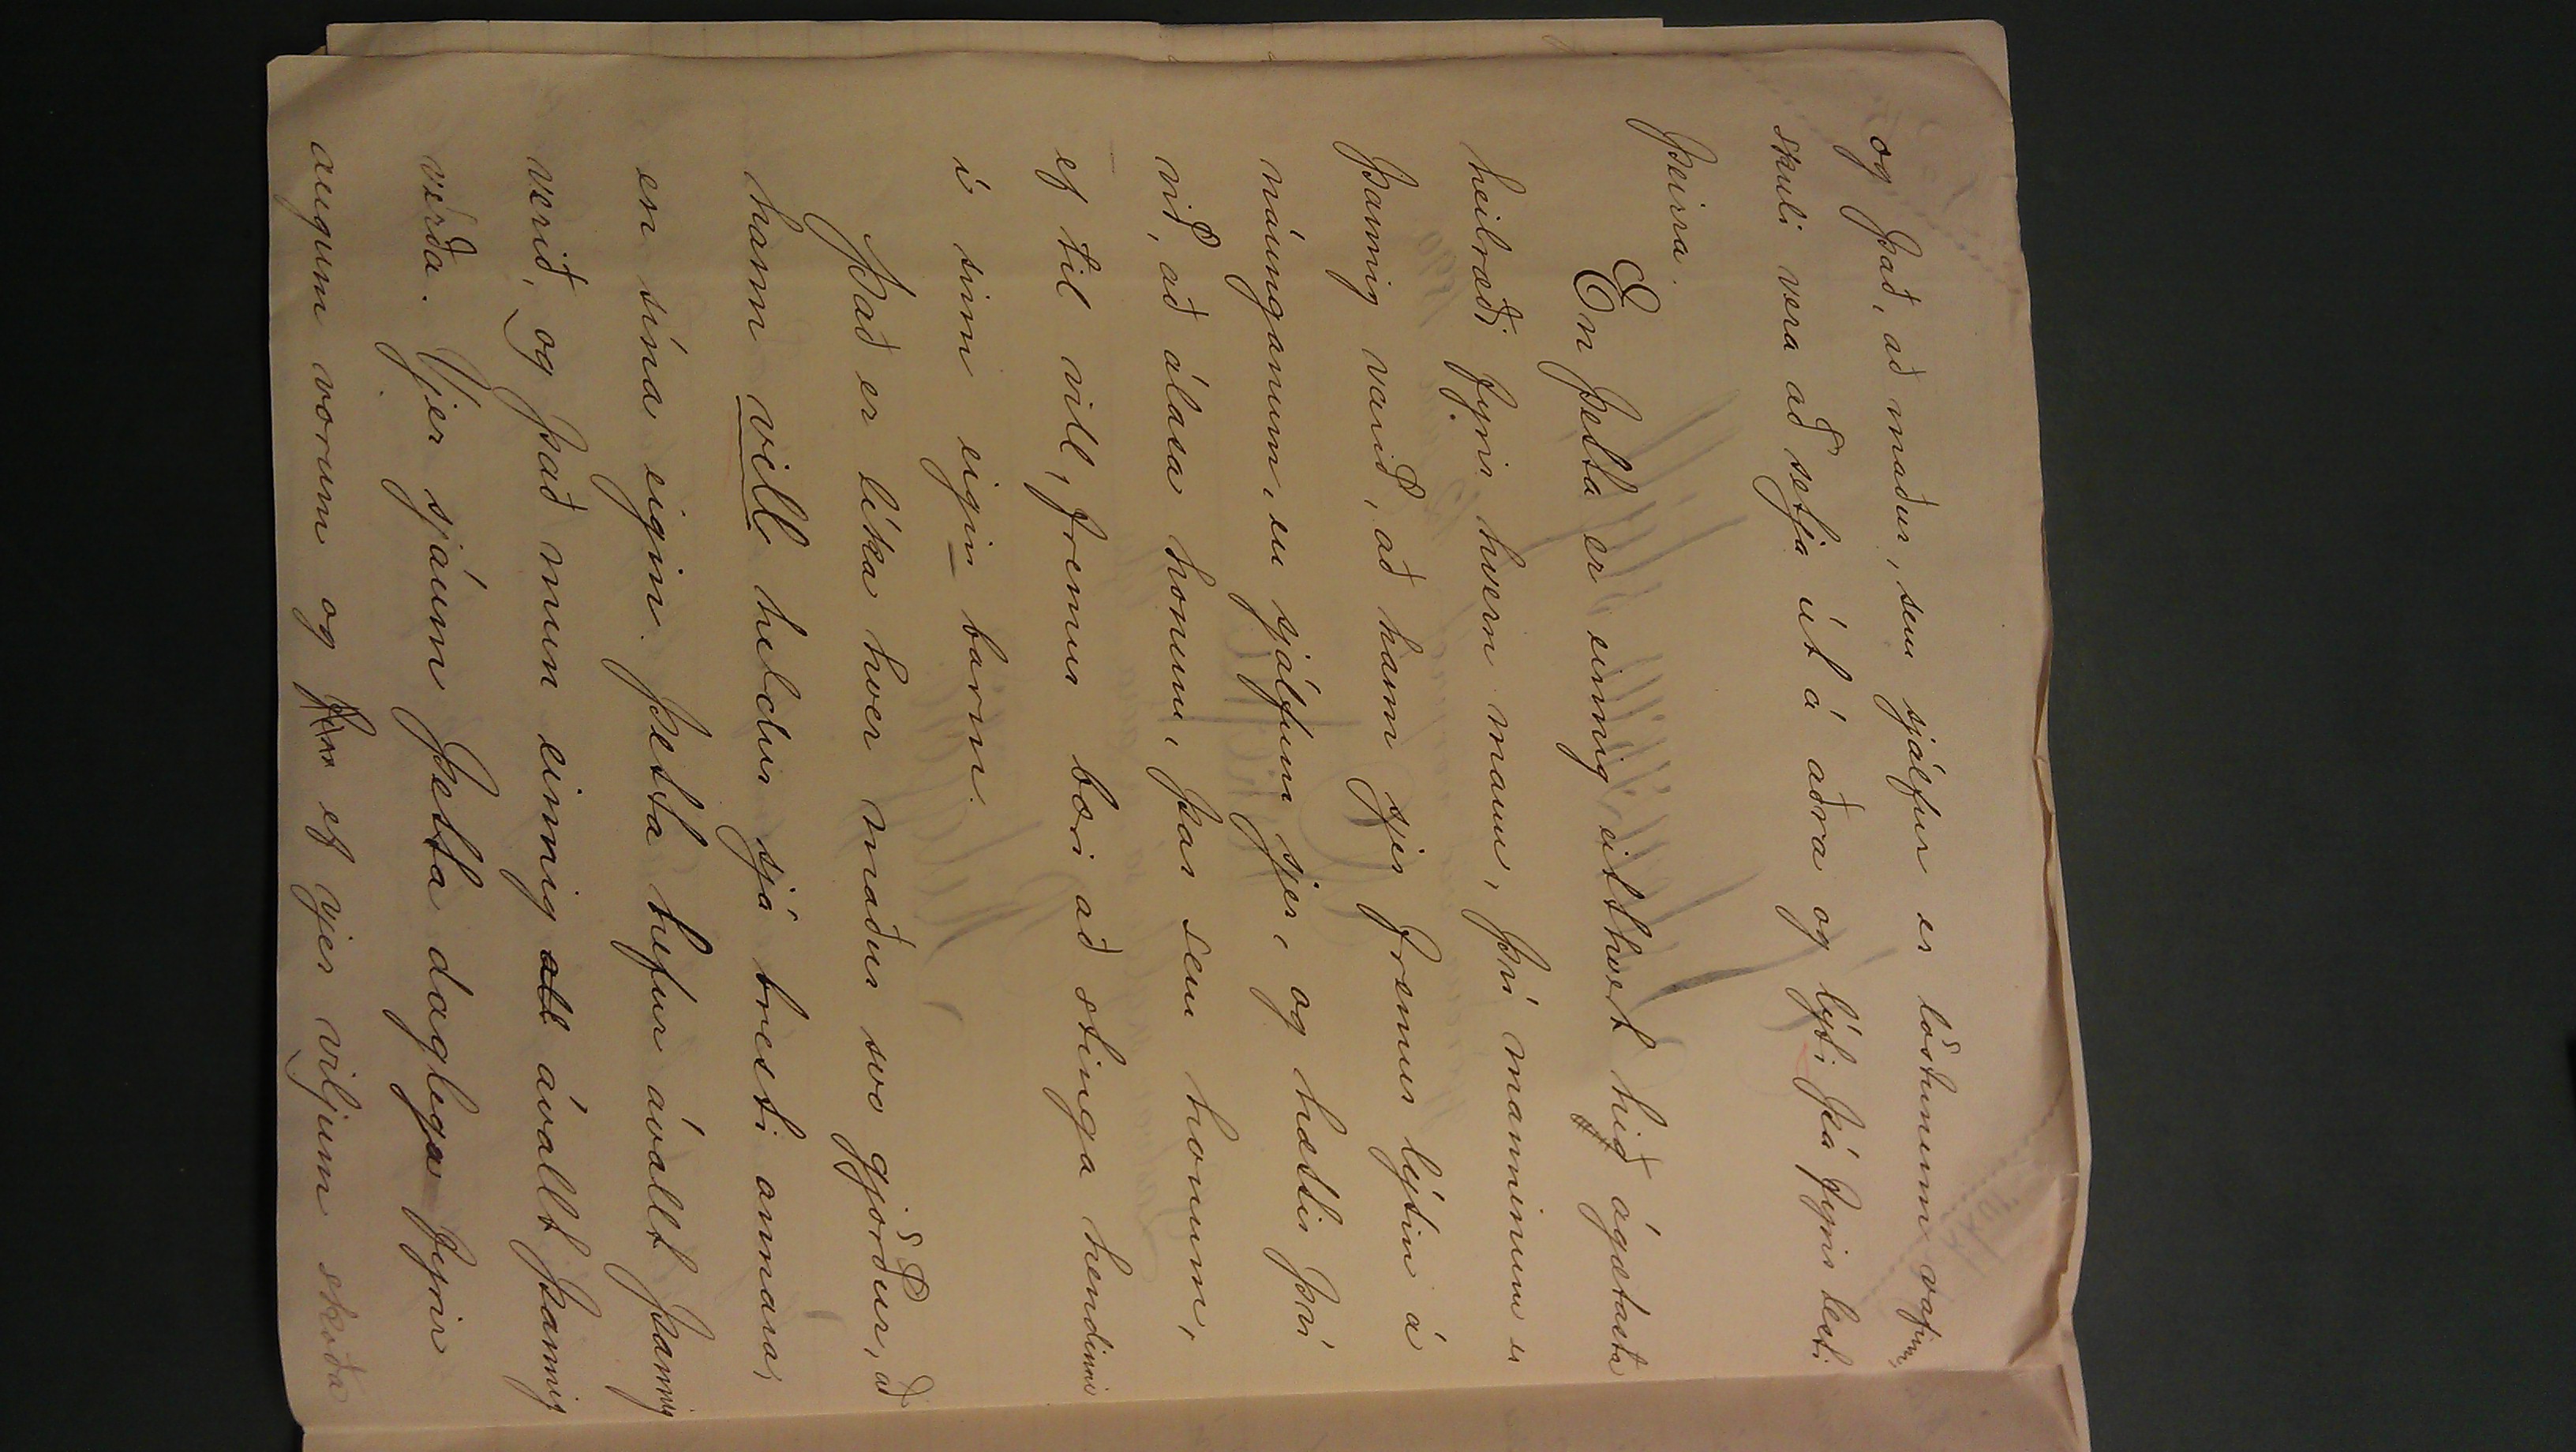 og það, að maður, sem sjálfur er löstunum vafinn,
skuli vera að setja út á aðra og lýti þá fyrir lesti
þeirra.
En þetta er einnig eitthvert hið ágætasta
heilræði fyrir hvern mann, því manninum er
þannig varið, að hann sjer fremur lýtin á
náunganum, en sjálfum sjer, og hættir því
við, að álasa honum, þar sem honum,
ef til vill, fremur bæri að stinga hendinni
í sinn eigin barm.
Það er líka hver maður svo gjörður, að
hann vill heldur sjá bresti annara,
en sína eigin. Þetta hefur ávallt þannig
verið, og það mun einnig ávallt þannig
verða. Vjer sjáum þetta daglega fyrir
augum vorum og ef vjer viljum skoða